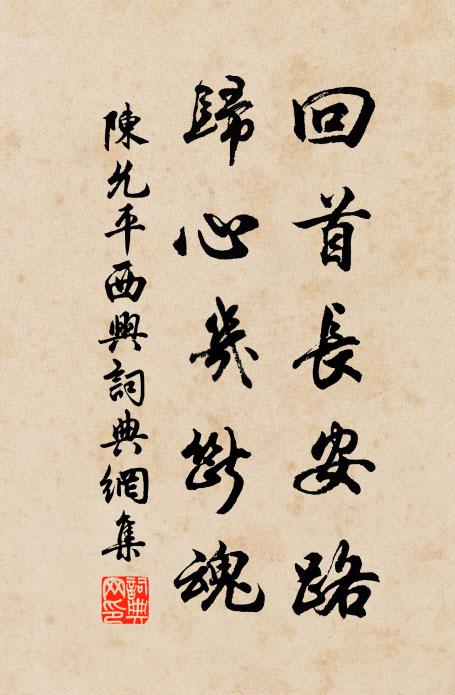 回首長安路
歸心幾斷魂
陳允平西興詞典網集
詞典网印